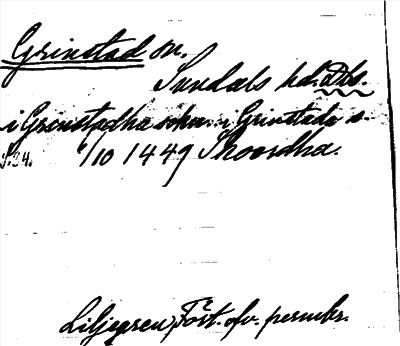 Grinstad sn.
Sundals hd. Dls.
i Grinstadha sokn i Grinstada s.
S. 34. 6/10 1449 Skoordha.
Liljegren, Fört. öfv. permbr.